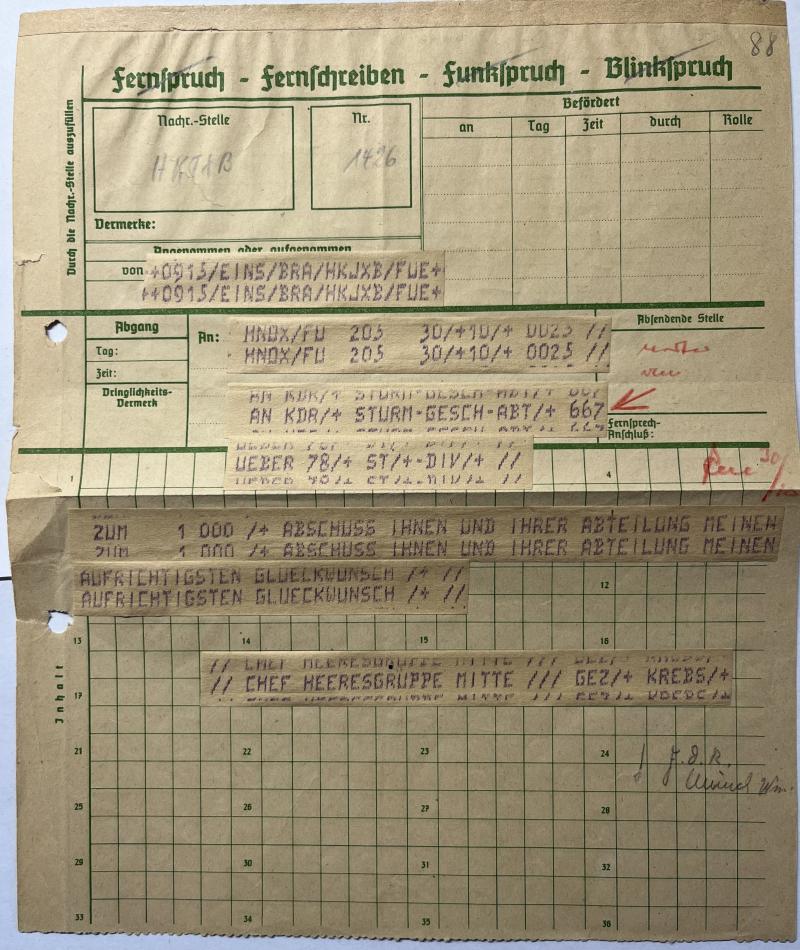 88
Fernspruch - Fernschreiben - Funkspruch - Blinkspruch
Durch die Nachr.-Stelle auszufüllen
Nachr.-Stelle
Nr.
1426
Befördert
an Tag Zeit durch Rolle
Vermerke:
Angenommen oder aufgenommen
von ++0915/EINS/BRA/HKJXB/FUE+
++0915/EINS/BRA/HKJXB/FUE+
Abgang
Tag:
Zeit:
Dringlichkeits-
Vermerk
An: HNOX/FU 205 30/+10/+ 0025 //
HNOX/FU 205 30/+10/+ 0025 //
Absendende Stelle
AN KDR/+ STURM-GESCH-ABT/+ 667
AN KDR/+ STURM-GESCH-ABT/+ 667
Fernsprech-
Anschluß:
UEBER 78/+ ST/+-DIV/+ //
UEBER 78/+ ST/+-DIV/+ //
UEBER 78/+ ST/+-DIV/+ //
1 4
30/10
ZUM 1 000 /+ ABSCHUSS IHNEN UND IHRER ABTEILUNG MEINEN
ZUM 1 000 /+ ABSCHUSS IHNEN UND IHRER ABTEILUNG MEINEN
AUFRICHTIGSTEN GLUECKWUNSCH /+ //
AUFRICHTIGSTEN GLUECKWUNSCH /+ //
12
13 14 15 16
// CHEF HEERESGRUPPE MITTE /// GEZ/+ KREBS/+
// CHEF HEERESGRUPPE MITTE /// GEZ/+ KREBS/+
// CHEF HEERESGRUPPE MITTE /// GEZ/+ KREBS/+
Inhalt
17
21 22 23 24
F.d.R.
25 26 27 28
29 30 31 32
33 34 35 36